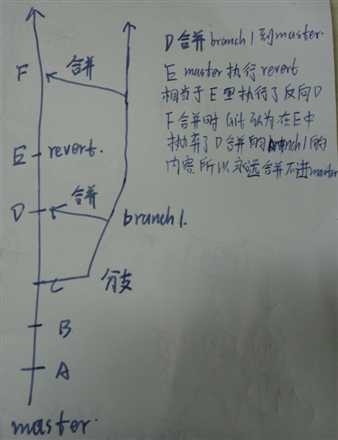 D合并branch1到master.
E master执行revert
相当于E里执行了反向D
F合并时Git认为在E中
抛弃了D合并的branch1的
内容所以永远合并不进master
F
合并
E
revert.
D
合并
branch1.
C
分支
B
A
master.